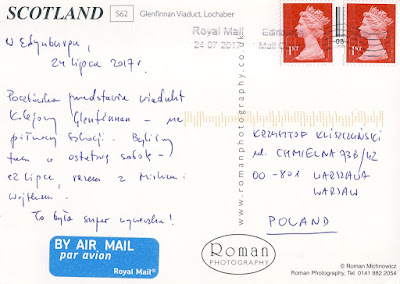 SCOTLAND S62 Glenfinnan Viaduct, Lochaber
Royal Mail
24-07-2017
1ST
1ST
W Edynburgu,
24 lipca 2017 r.
Pocztówka przedstawia wiadukt
kolejowy Glenfinnan – na
północy Szkocji. Byliśmy
tam w ostatnią sobotę –
22 lipca, razem z Mirkiem i
Wojtkiem.
To była super wycieczka!
www.romanphotography.co.uk
KRZYSZTOF
ul. CHMIELNA 73B/42
00-801 WARSZAWA
WARSAW
POLAND
BY AIR MAIL
par avion
Royal Mail®
Roman
PHOTOGRAPHY
© Roman Michnowicz
Roman Photography, Tel. 0141 882 2054